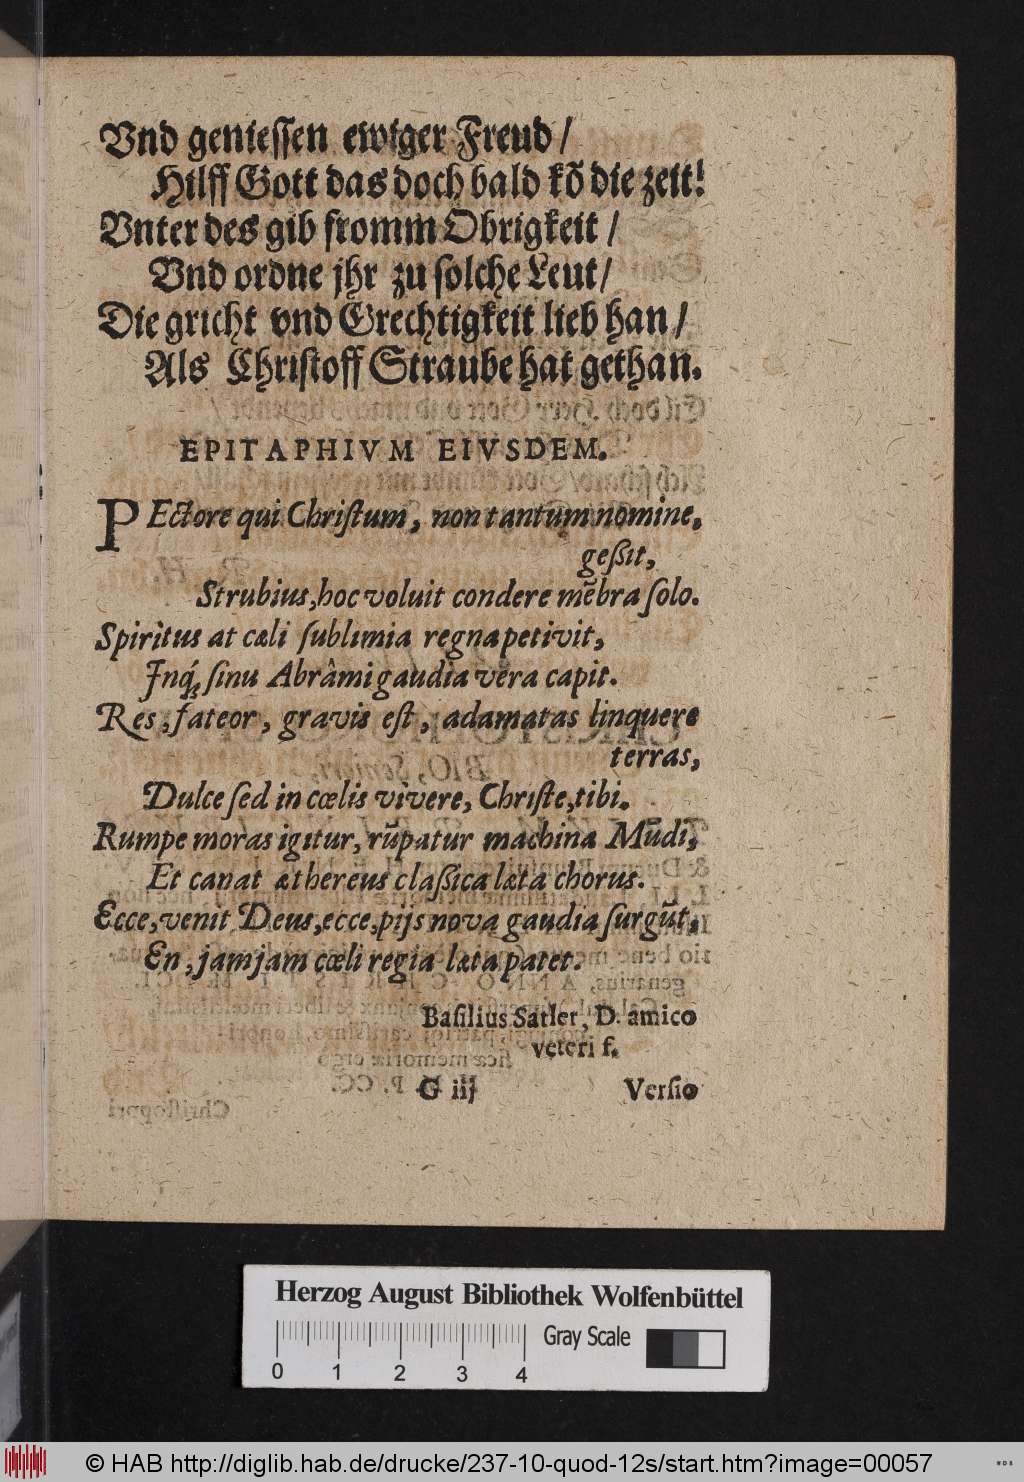 Vnd genieſſen ewiger Freud /
Hilff Gott das doch bald kõ die zeit!
Vnter des gib fromm Obrigkeit /
Vnd ordne jhr zu ſolche Leut /
Die gricht vnd Grechtigkeit lieb han /
Als Chriſtoff Straube hat gethan.
EPITAPHIVM EIVSDEM.
PEctore qui Chriſtum, non tantum nomine,
geßit,
Strubius, hoc voluit condere mẽbra ſolo.
Spiritus at cæli ſublimia regna petivit,
Inq́; ſinu Abrâmi gaudia vera capit.
Res, fateor, gravis eſt, adamatas linquere
terras,
Dulce ſed in cœlis vivere, Chriſte, tibi.
Rumpe moras igitur, rũpatur machina Mũdi,
Et canat æthereus claßica læta chorus.
Ecce, venit Deus, ecce, pijs nova gaudia ſurgũt,
En, jamjam cœli regia læta patet.
Baſilius Satler, D. amico
veteri f.
G iij Verſio
Herzog August Bibliothek Wolfenbüttel
Gray Scale
0 1 2 3 4
© HAB http://diglib.hab.de/drucke/237-10-quod-12s/start.htm?image=00057